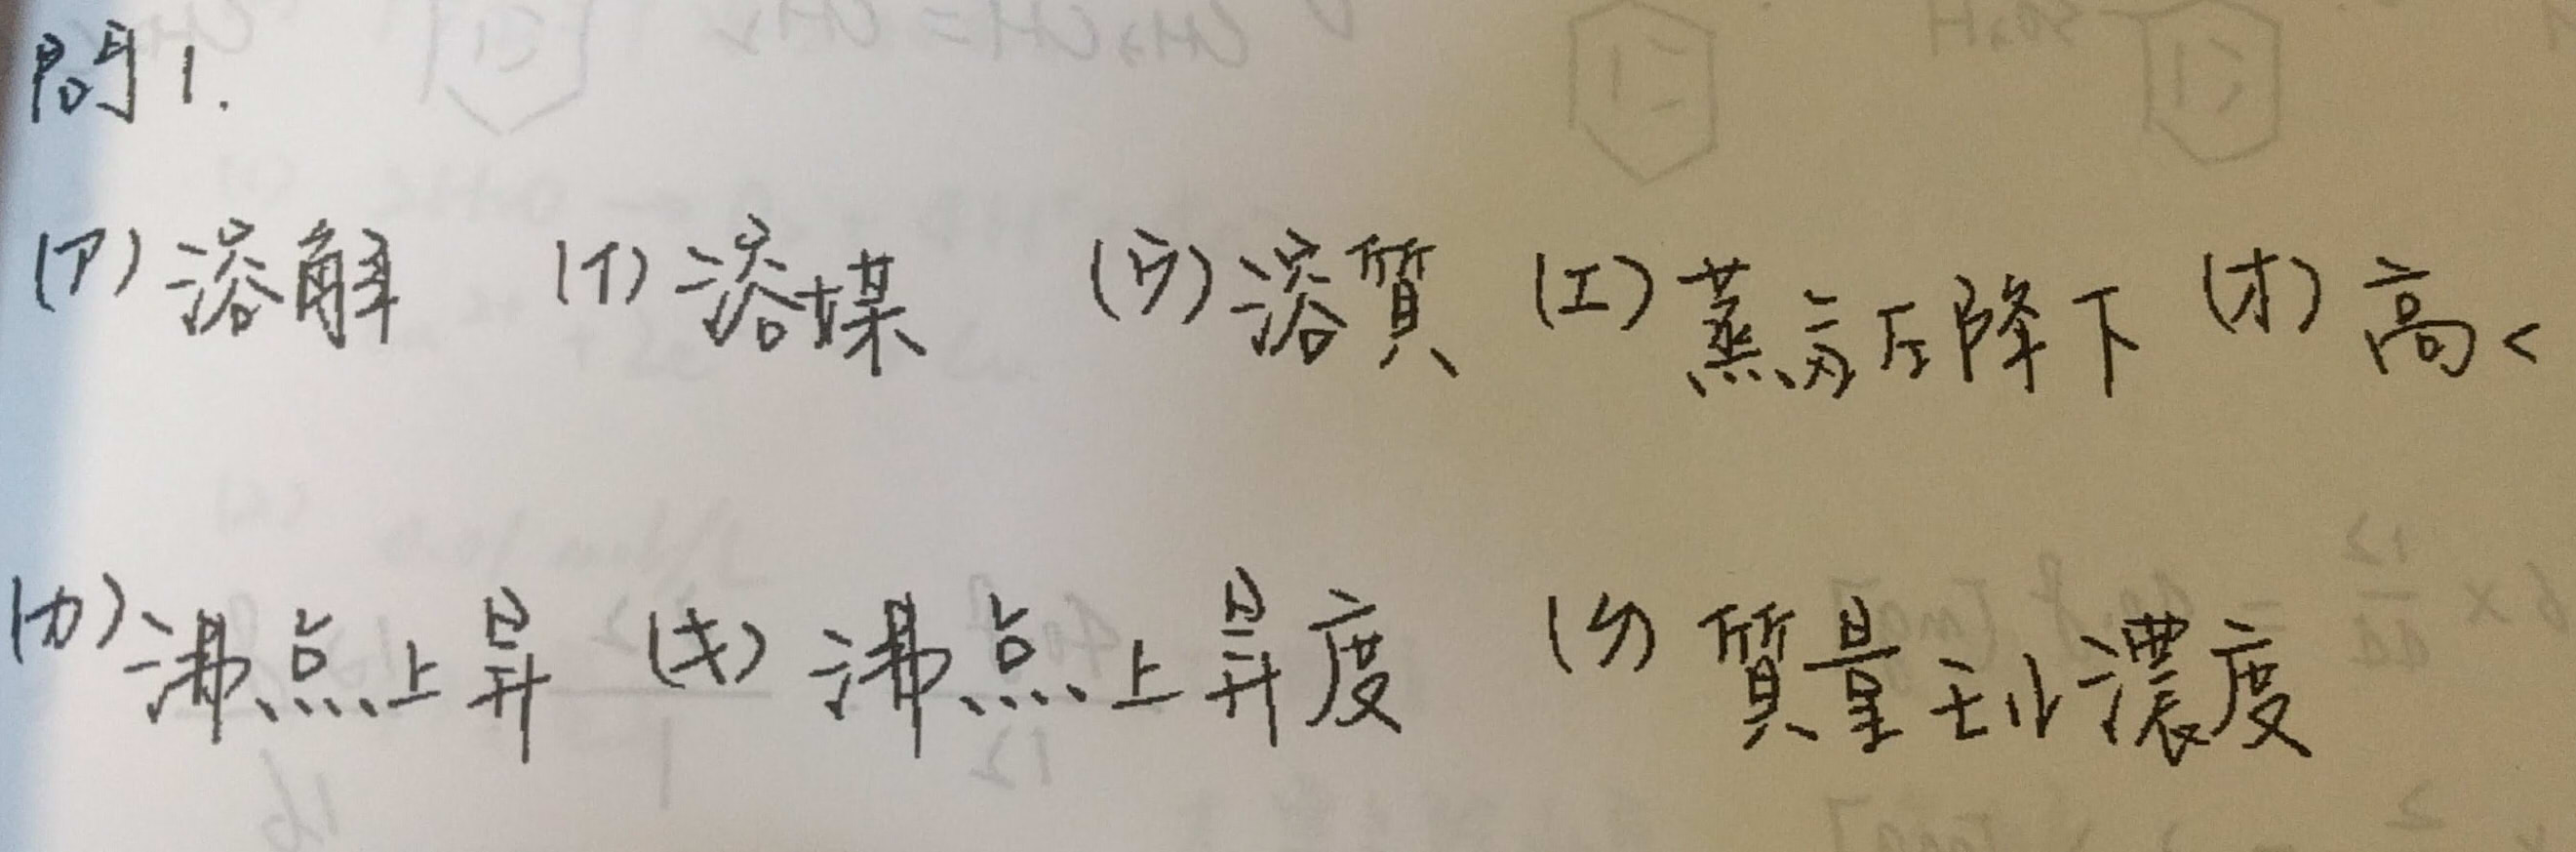 問1.
(ア)溶解 (イ)溶媒 (ウ)溶質 (エ)蒸気圧降下 (オ)高く
(カ)沸点上昇 (キ)沸点上昇度 (ク)質量モル濃度